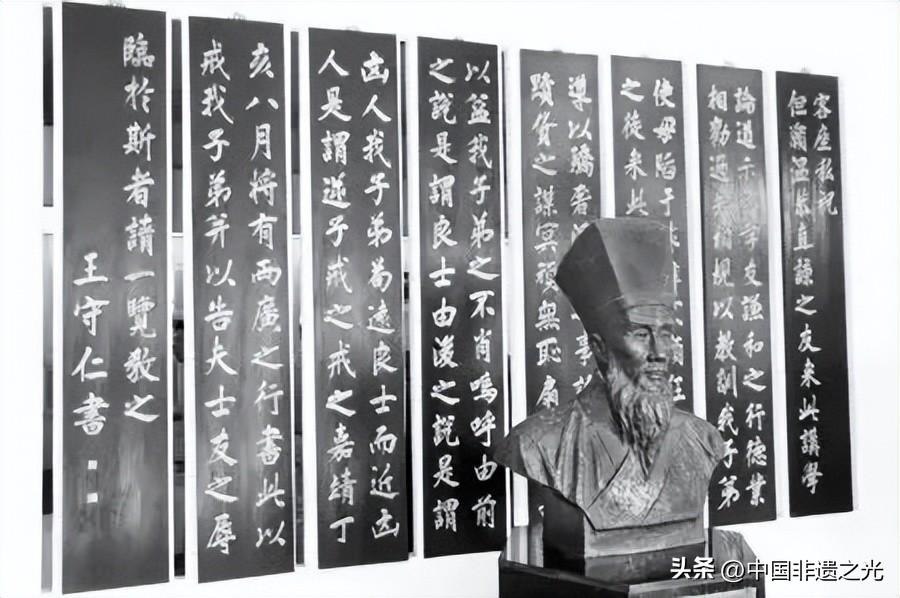 客座私祝
但願温恭直諒之友来此講學
論道示以孝友謙和之行德業
相勸過失相規以教訓我子弟
使毋陷于非
之徒来此
導以驕奢
黷貨之謀冥頑無恥扇
以益我子弟之不肖嗚呼由前
之說是謂良士由後之說是謂
凶人我子弟苟遠良士而近凶
人是謂逆子戒之戒之嘉靖丁
亥八月將有兩廣之行書此以
戒我子弟并以告夫士友之辱
臨於斯者請一覽教之
王守仁書
头条 @中国非遗之光